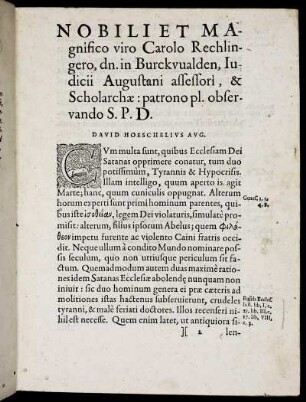 NOBILI ET MA-
gnifico viro Carolo Rechlin-
gero, dn. in Burckvualden, Iu-
dicii Augustani assessori, &
Scholarchæ: patrono pl. obser-
vando S. P. D.
DAVID HOESCHELIUS AUG.
CVm multa sunt, quibus Ecclesiam Dei
Satanas opprimere conatur, tum duo
potissimùm, Tyrannis & Hypocrisis.
Illam intelligo, quum aperto is agit
Marte; hanc, quum cuniculis oppugnat. Alterum
horum experti sunt primi hominum parentes, qui-
bus iste legem Dei violaturis, simulatè pro-
misit: alterum, filius ipsorum Abelus; quem φιλό-
θεον impetu furente ac violento Caini fratris occi-
dit. Neque ullum à condito Mundo nominare pos-
sis seculum, quio non utriusque periculum sit fa-
ctum. Quemadmodum autem duas maximè ratio-
nes idem Satanas Ecclesiæ abolendę nunquam non
iniut: sic duo hominum genera ei præ cæteris ad
molitiones istas hactenus subserviêrunt, crudeles
tyranni, & malè feriati doctores. Illos recenseri ni-
hil est necesse. Quem enim latet, ut antiquiora si-
)( 2 len-